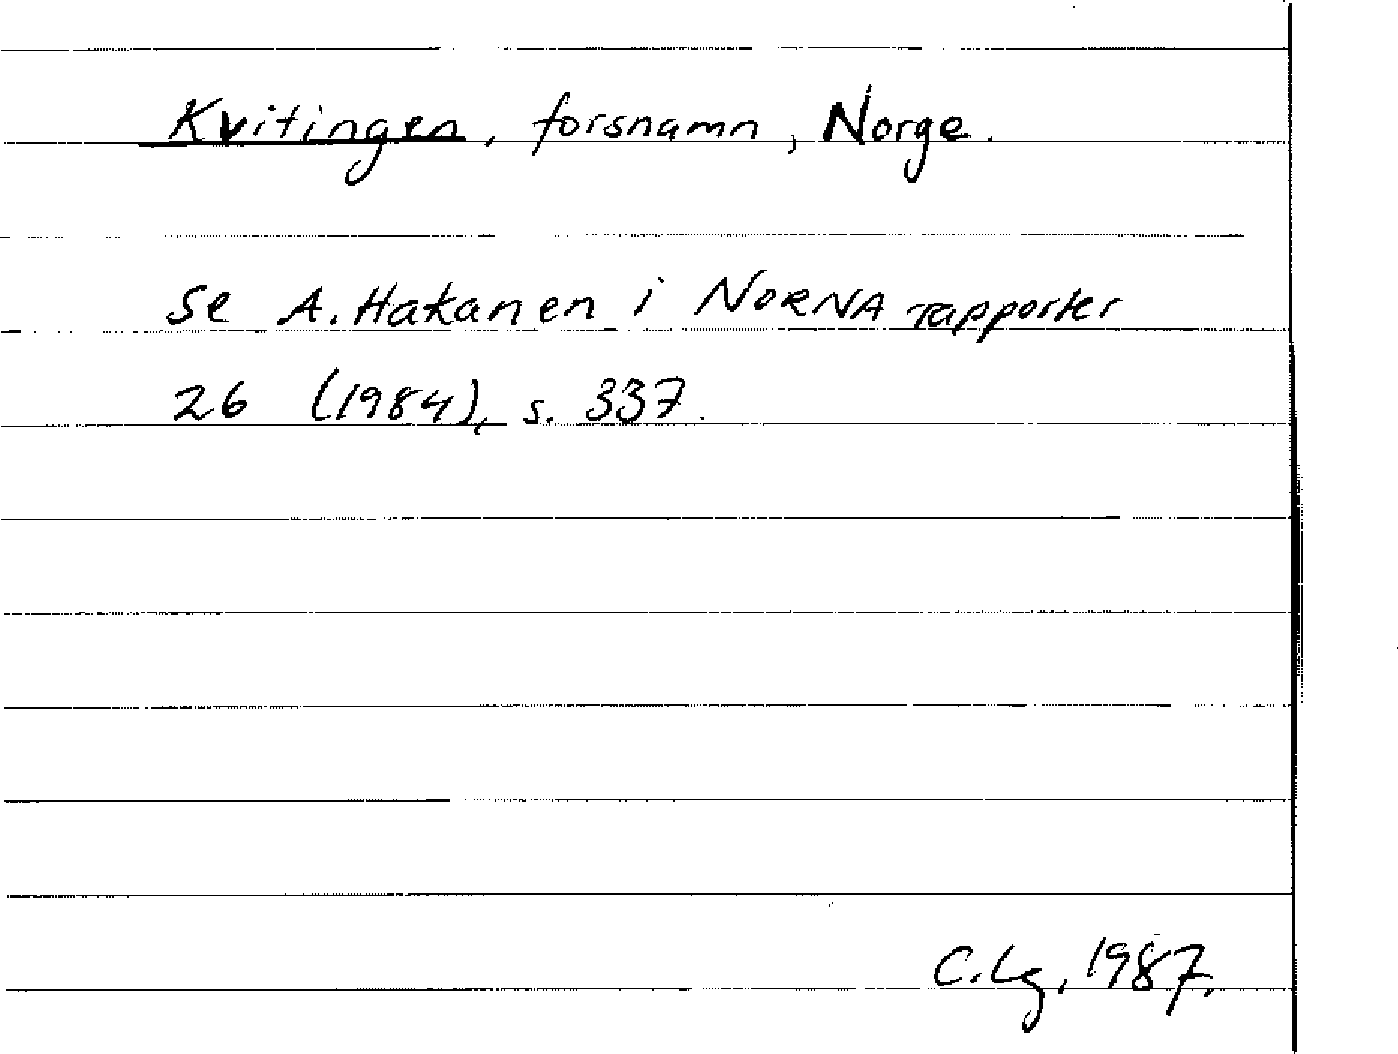 Kvitingen, forsnamn, Norge.
se A. Hakanen i NORNA rapporter
26 (1984), s. 337.
C.Lg, 1987.